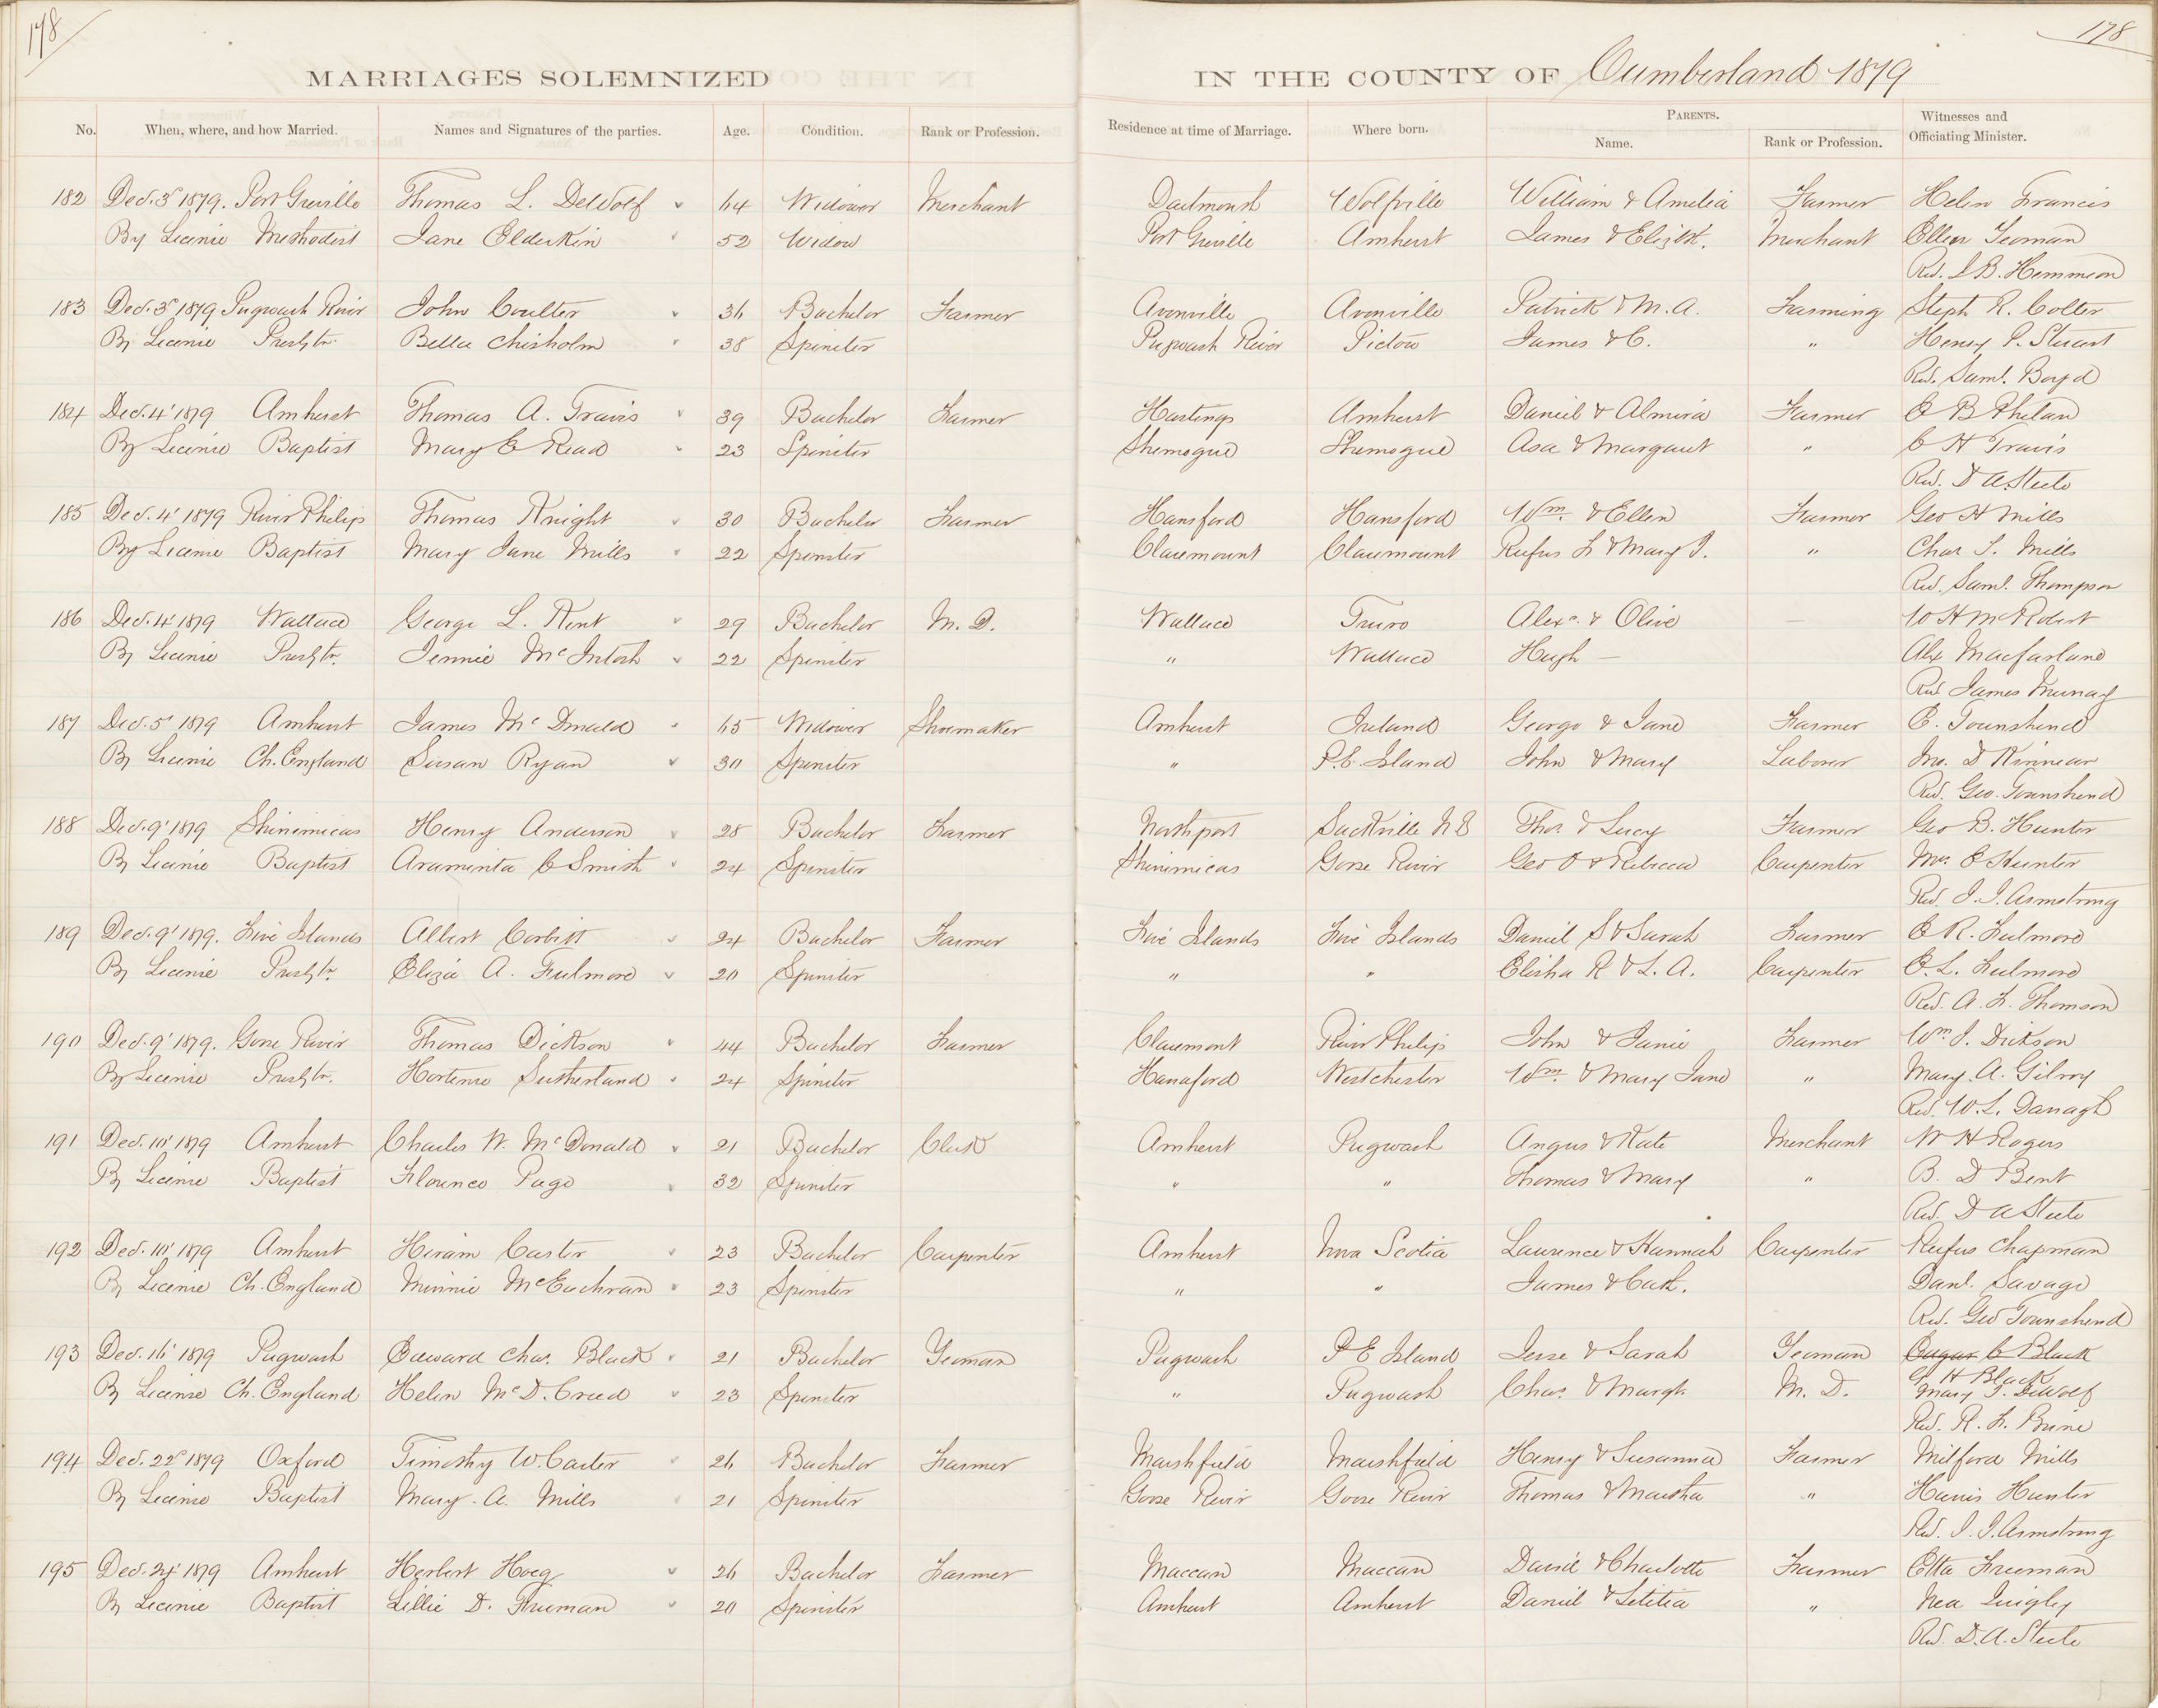 178
178
MARRIAGES SOLEMNIZED IN THE COUNTY OF Cumberland 1879
No. When, where, and how Married. Names and Signatures of the parties. Age. Condition. Rank or Profession. Residence at time of Marriage. Where born. PARENTS. Name. Rank or Profession. Witnesses and Officiating Minister.
182 Dec. 3d 1879. Port Greville Thomas L. DeWolf 64 Widower Merchant Dartmouth Wolfville William & Amelia Farmer Helen Francis
By License Methodist Jane Elderkin 52 Widow Port Greville Amherst James & Elizth. Merchant Ellen Yeoman
Rev. I. B. Hemmeon
183 Dec. 3d 1879 Pugwash River John Coulter 36 Bachelor Farmer Avonville Avonville Patrick & M. A. Farming Steph R. Colter
By License Presbtn. Bella Chisholm 38 Spinster Pugwash River Pictou James & C. " Henry P. Stuart
Rev. Saml. Boyd
184 Dec. 4' 1879 Amherst Thomas A. Travis 39 Bachelor Farmer Hastings Amherst Daniel & Almira Farmer E B Phelan
By License Baptist Mary E Read 23 Spinster Shemogue Shemogue Asa & Margaret " C H Travis
Rev. D A Steele
185 Dec. 4' 1879 River Philip Thomas Knight 30 Bachelor Farmer Hansford Hansford Wm. & Ellen Farmer Geo H Mills
By License Baptist Mary Jane Mills 22 Spinster Claremount Claremount Rufus F & Mary J. " Chas S. Mills
Rev. Saml. Thompson
186 Dec. 4' 1879 Wallace George L. Kent 29 Bachelor M. D. Wallace Truro Alexr. & Olive — W H McRobert
By License Presbtn. Jennie McIntosh 22 Spinster " Wallace Hugh — Alex Macfarlane
Rev James Murray
187 Dec. 5' 1879 Amherst James McDonald 65 Widower Shoemaker Amherst Ireland George & Jane Farmer E. Townshend
By License Ch. England Susan Ryan 30 Spinster " P. E. Island John & Mary Laborer Jno. D Kinnear
Rev. Geo. Townshend
188 Dec. 9' 1879 Shinimicas Henry Anderson 28 Bachelor Farmer Northport Sackville N B Thos. & Lucy Farmer Geo B. Hunter
By License Baptist Araminta E Smith 24 Spinster Shinimicas Goose River Geo O & Rebecca Carpenter Mrs. E Hunter
Rev. J. I. Armstrong
189 Dec. 9' 1879. Five Islands Albert Corbitt 24 Bachelor Farmer Five Islands Five Islands Daniel S & Sarah Farmer E R. Fulmore
By License Presbtn. Eliza A. Fulmore 20 Spinster " " Elisha R & L. A. Carpenter E. L. Fulmore
Rev. A. F. Thomson
190 Dec. 9' 1879. Goose River Thomas Dickson 44 Bachelor Farmer Claremont River Philip John & Janie Farmer Wm. J. Dickson
By License Presbtn. Hortense Sutherland 24 Spinster Hansford Westchester Wm. & Mary Jane " Mary. A. Gilroy
Rev. W. L. Darragh
191 Dec. 10' 1879 Amherst Charles W. McDonald 21 Bachelor Clerk Amherst Pugwash Angus & Kate Merchant W H Rogers
By License Baptist Florence Page 32 Spinster " " Thomas & Mary " B. D Bent
Rev. D A Steele
192 Dec. 10' 1879 Amherst Hiram Carter 23 Bachelor Carpenter Amherst Nova Scotia Laurence & Hannah Carpenter Rufus Chapman
By License Ch. England Minnie McEachran 23 Spinster " " James & Cath. Danl. Savage
Rev. Geo Townshend
193 Dec. 16' 1879 Pugwash Edward Chas. Black 21 Bachelor Yeoman Pugwash P E Island Jesse & Sarah Yeoman Edgar C Black
C. H Black
By License Ch. England Helen McD. Creed 23 Spinster " Pugwash Chas. & Margt. M. D. Mary J. DeWolf
Rev. R. F. Brine
194 Dec. 22d 1879 Oxford Timothy W. Carter 26 Bachelor Farmer Marshfield Marshfield Henry & Susanna Farmer Milford Mills
By License Baptist Mary. A. Mills 21 Spinster Goose River Goose River Thomas & Martha " Harris Hunter
Rev. J. I. Armstrong
195 Dec. 24' 1879 Amherst Herbert Hoeg 26 Bachelor Farmer Maccan Maccan David & Charlotte Farmer Etta Freeman
By License Baptist Lillie D. Freeman 20 Spinster Amherst Amherst Daniel & Letitia " Nea Quigley
Rev. D. A. Steele